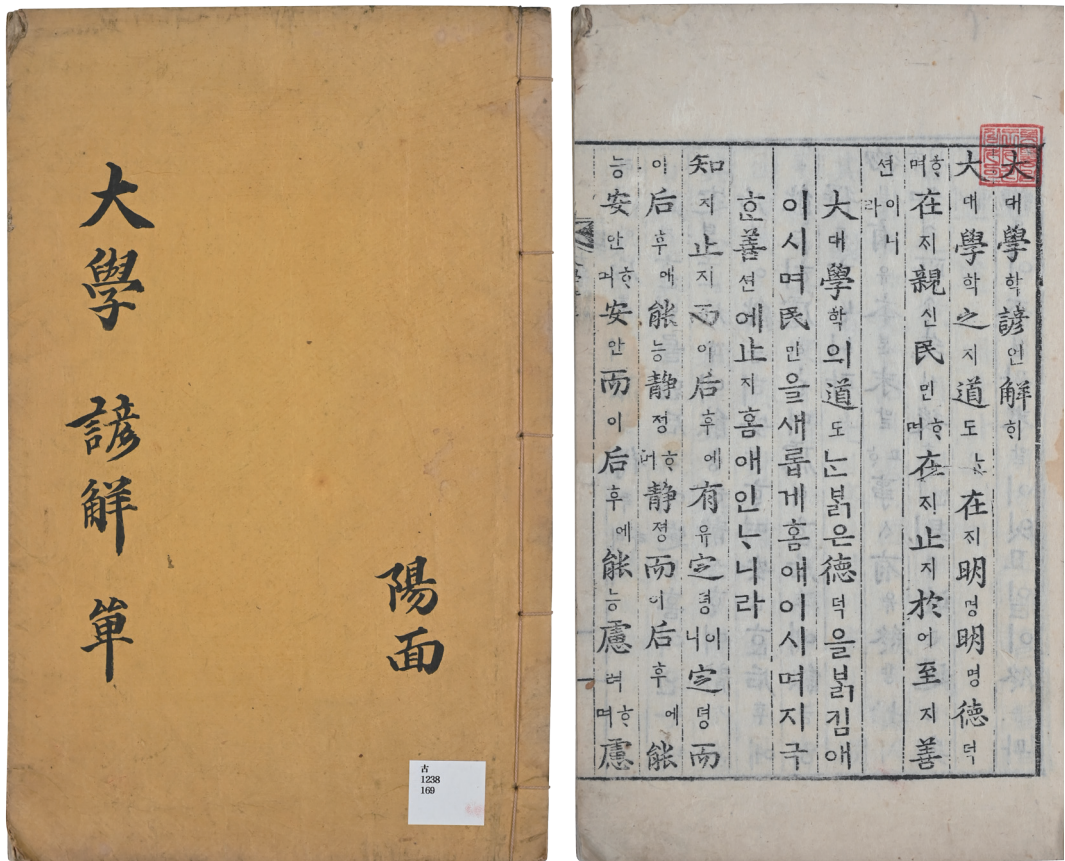 陽面
大學 諺解 單
古
1238
169
大대學학諺언解ᄒᆡ
大대學학之지道도ᄂᆞᆫ在ᄌᆡ明명明명德덕
ᄒᆞ며在ᄌᆡ親신民민ᄒᆞ며在ᄌᆡ止지於어至지善
션이니라
大대學학의道도ᄂᆞᆫᄇᆞᆰ은德덕을ᄇᆞᆰ김애
이시며民민을새롭게홈애이시며지극
ᄒᆞᆫ善션에止지홈애인ᄂᆞ니라
知지止지而이后후에有유定뎡이니定뎡而
이后후애能능靜정ᄒᆞ며靜졍而이后후에能
능安안ᄒᆞ며安안而이后후에能능慮려ᄒᆞ며慮